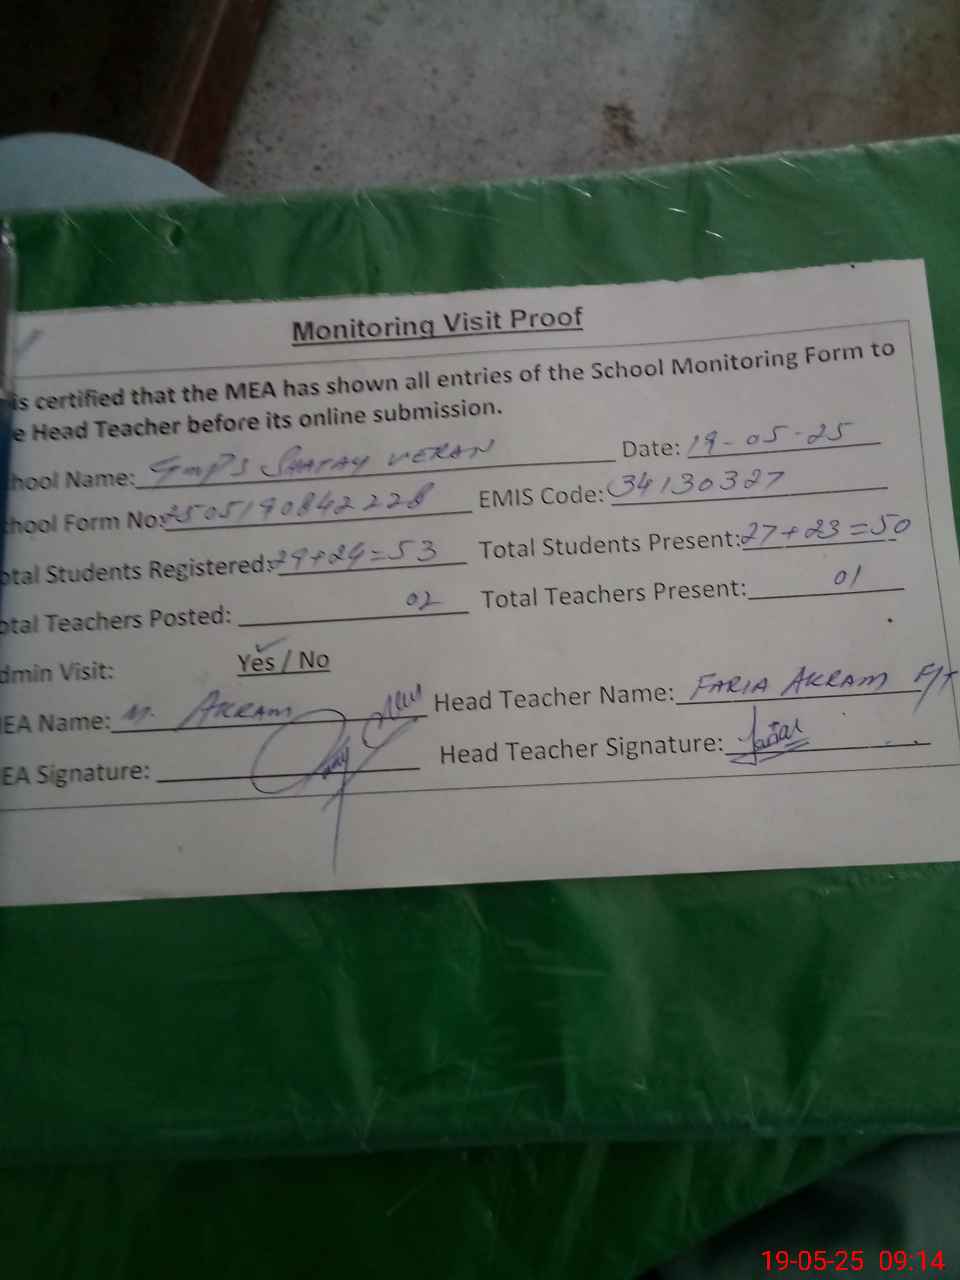 Monitoring Visit Proof
is certified that the MEA has shown all entries of the School Monitoring Form to
e Head Teacher before its online submission.
hool Name: GMPS SHATAY VERAN Date: 19-05-25
hool Form No: 2505190842228 EMIS Code: 34130327
otal Students Registered: 29+24=53 Total Students Present: 27+23=50
otal Teachers Posted: 02 Total Teachers Present: 01
dmin Visit: Yes / No
EA Name: M. AKRAM Head Teacher Name: FARIA AKRAM
EA Signature: Head Teacher Signature:
19-05-25 09:14